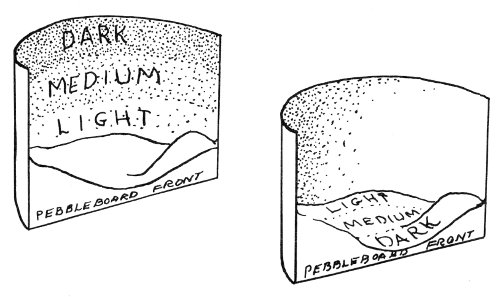 DARK
MEDIUM
LIGHT
PEBBLEBOARD FRONT
LIGHT
MEDIUM
DARK
PEBBLEBOARD FRONT